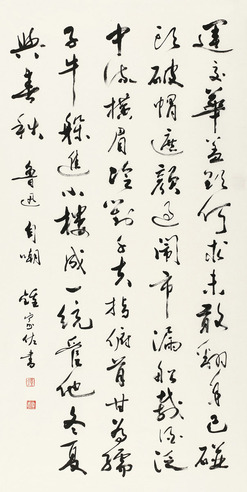 運交華蓋欲何求未敢翻身已碰
頭破帽遮顏過鬧市漏船載酒泛
中流橫眉冷對千夫指俯首甘為孺
子牛躲進小樓成一統管他冬夏
與春秋 魯迅自嘲 鍾家佐書